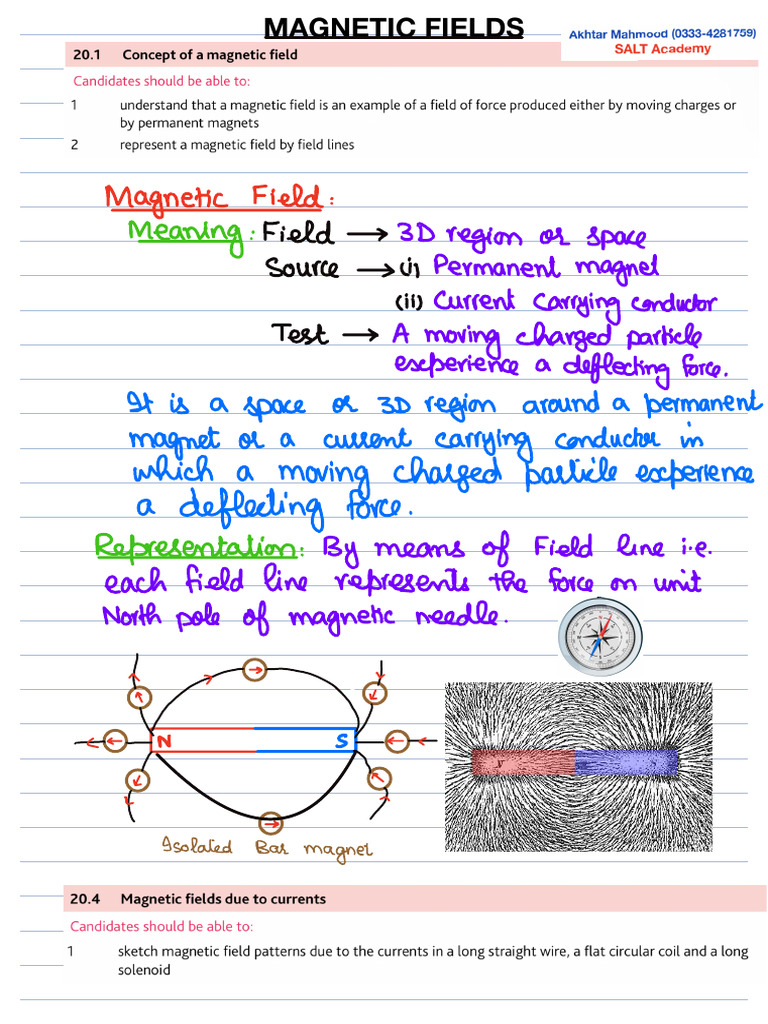 MAGNETIC FIELDS
Akhtar Mahmood (0333-4281759)
SALT Academy
20.1 Concept of a magnetic field
Candidates should be able to:
1 understand that a magnetic field is an example of a field of force produced either by moving charges or
by permanent magnets
2 represent a magnetic field by field lines
Magnetic Field:
Meaning: Field → 3D region or space
Source → (i) Permanent magnet
(ii) Current Carrying conductor
Test → A moving charged particle
experience a deflecting force.
It is a space or 3D region around a permanent
magnet or a current carrying conductor in
which a moving charged particle experience
a deflecting force.
Representation: By means of Field line i.e.
each field line represents the force on unit
North pole of magnetic needle.
N S
Isolated Bar magnet
20.4 Magnetic fields due to currents
Candidates should be able to:
1 sketch magnetic field patterns due to the currents in a long straight wire, a flat circular coil and a long
solenoid